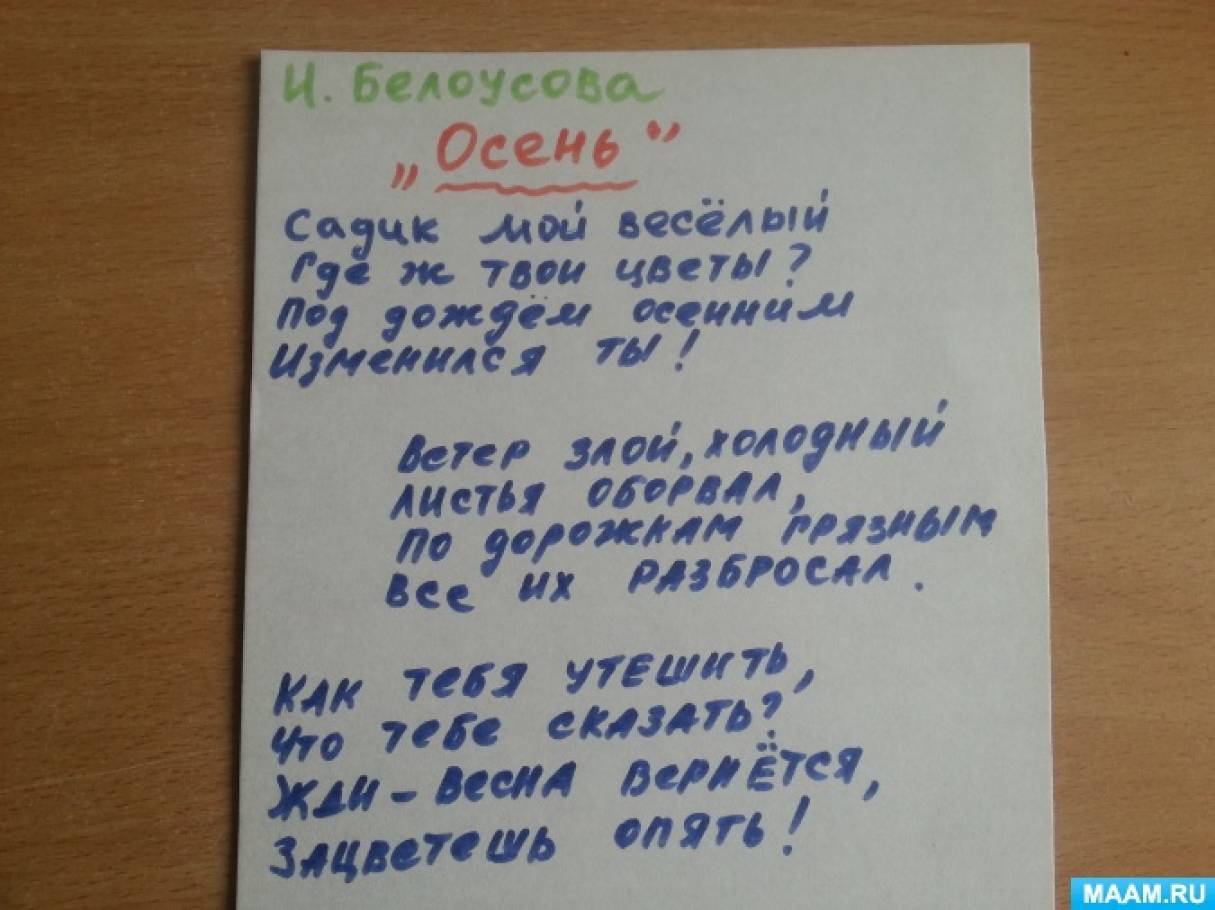 И. Белоусова
„Осень"
Садик мой весёлый
Где ж твои цветы?
Под дождём осенним
Изменился ты!
Ветер злой, холодный
листья оборвал,
по дорожкам грязным
все их разбросал.
Как тебя утешить,
что тебе сказать?
Жди – весна вернётся,
зацветешь опять!
MAAM.RU